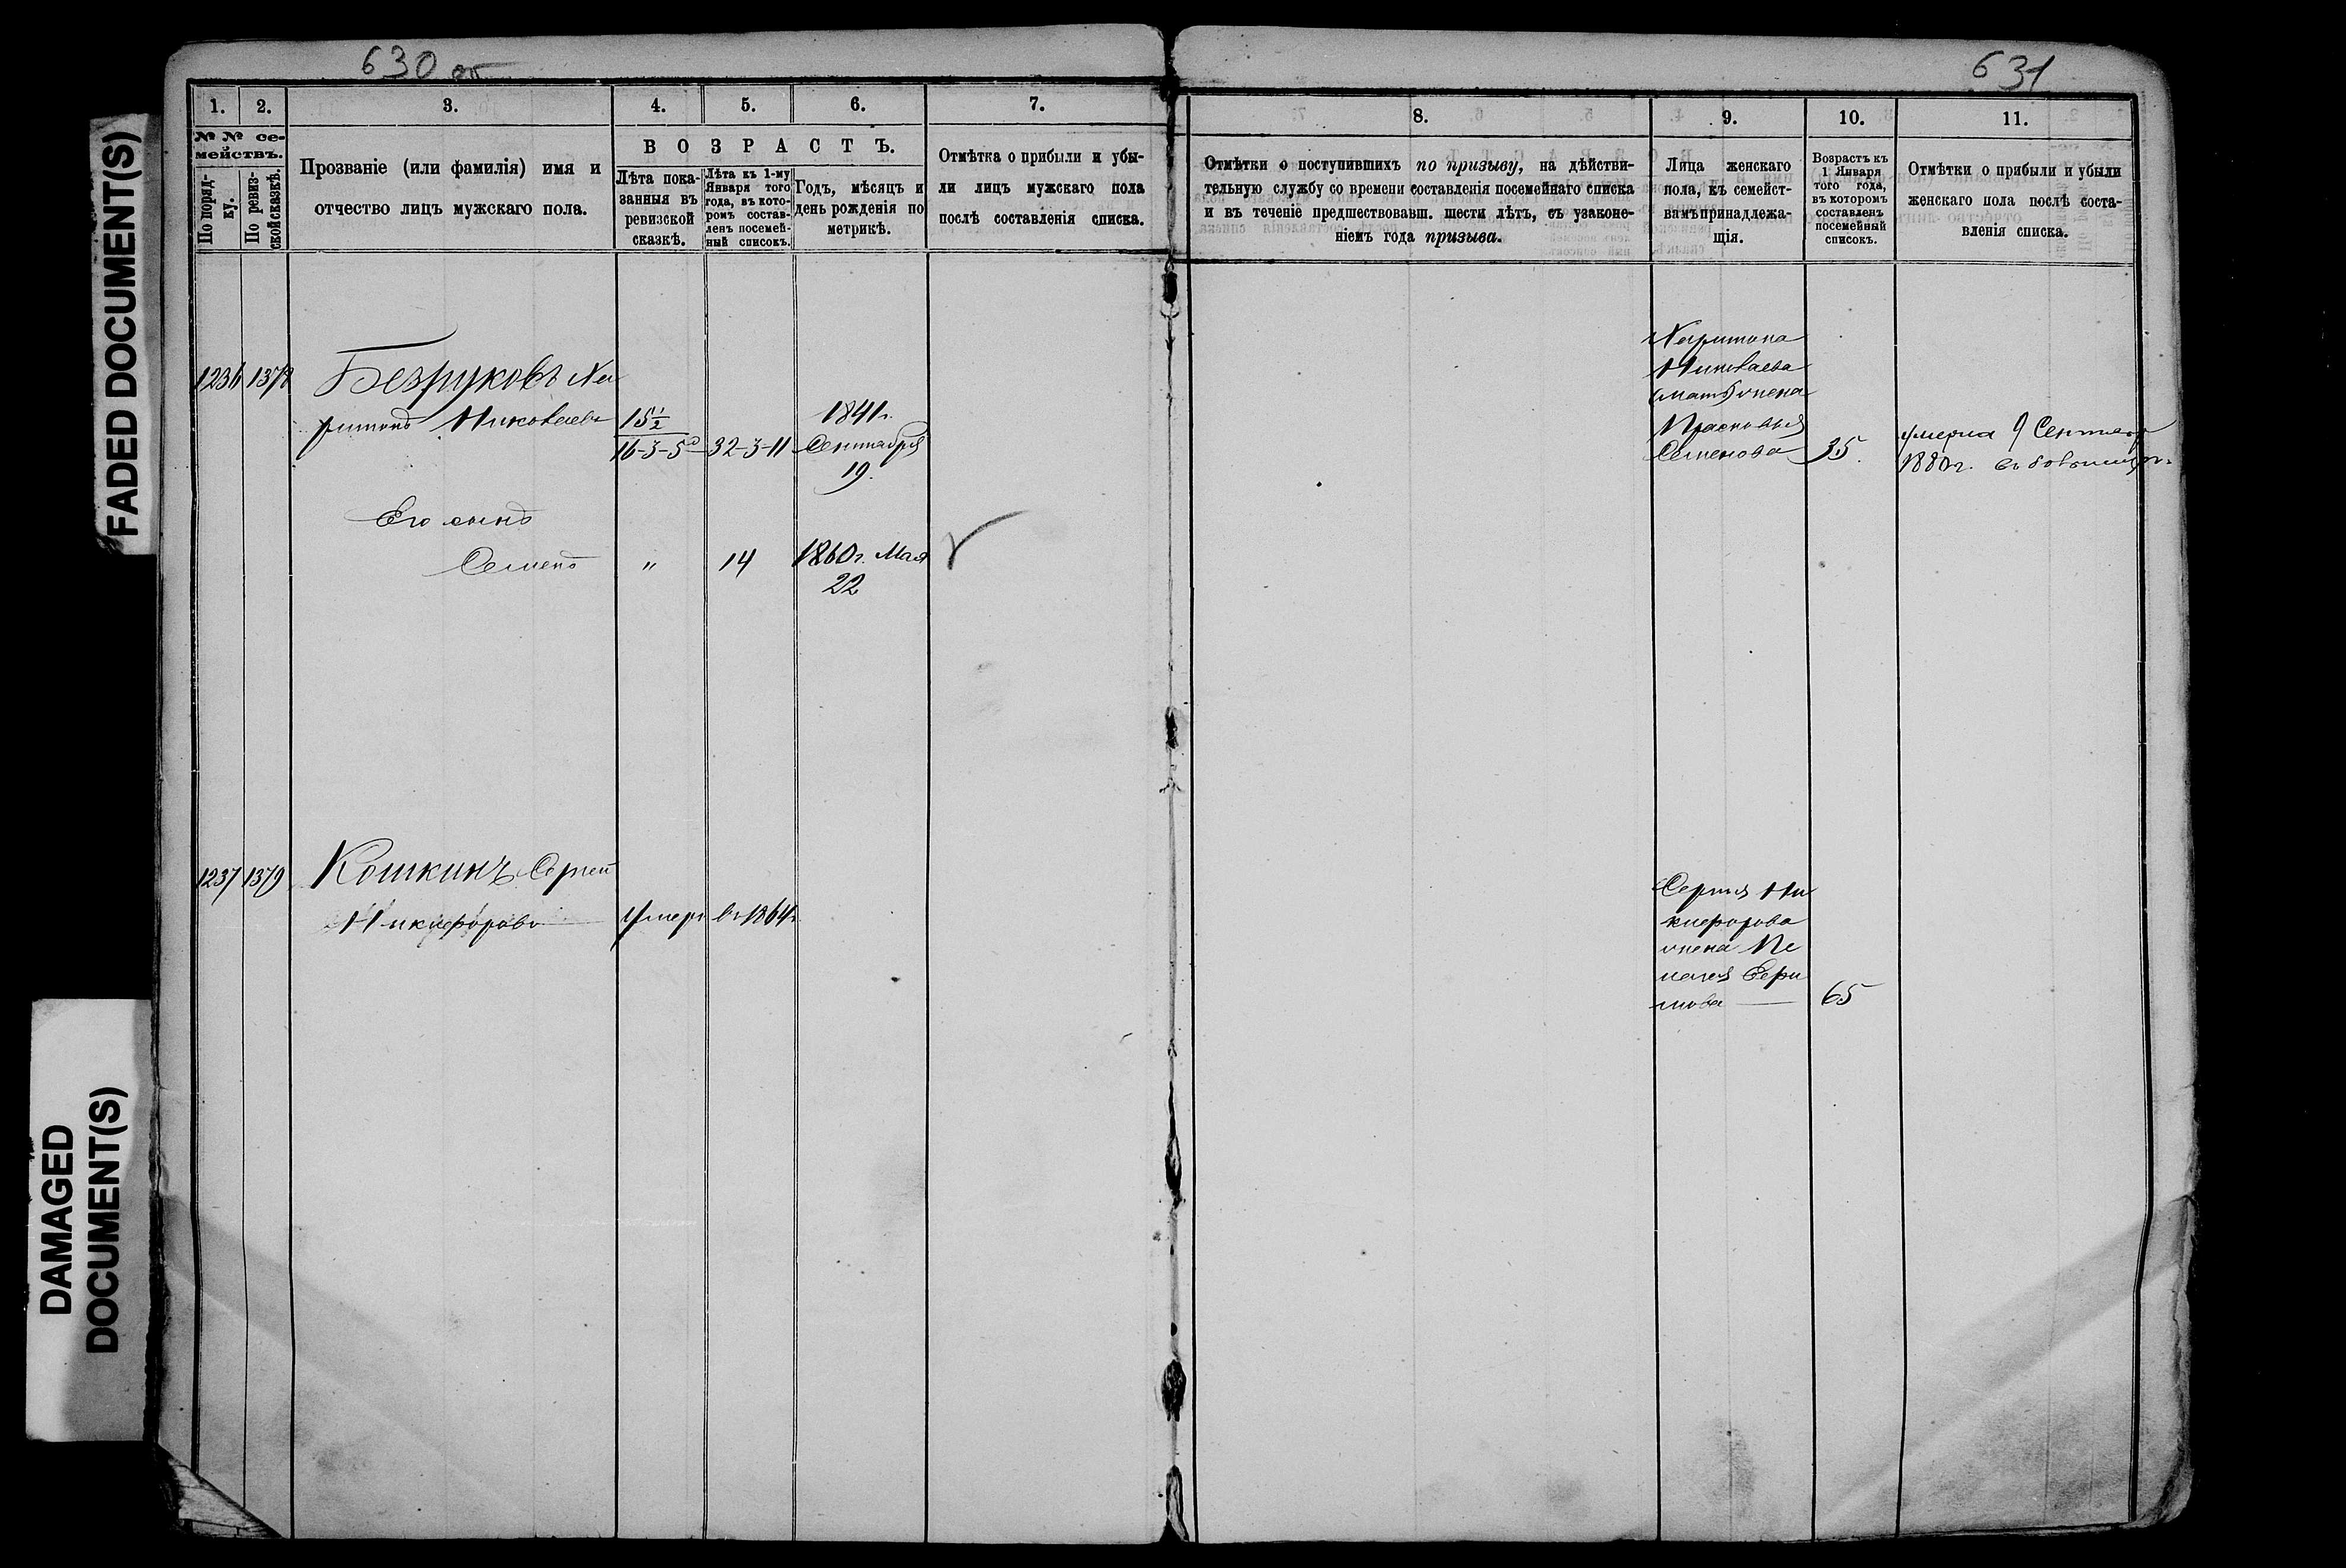 630 об
631
FADED DOCUMENT(S)
DAMAGED
DOCUMENT(S)
1.
2.
3.
4.
5.
6.
7.
№ № се-
мействъ.
По поряд-
ку.
По ревиз-
ской сказкѣ.
Прозваніе (или фамилія) имя и
отчество лицъ мужскаго пола.
ВОЗРАСТЪ.
Лѣта пока-
занныя въ
ревизской
сказкѣ.
Лѣта къ 1-му
Января того
года, въ кото-
ромъ состав-
ленъ посемей-
ный списокъ.
Годъ, мѣсяцъ и
день рожденія по
метрикѣ.
Отмѣтка о прибыли и убы-
ли лицъ мужскаго пола
послѣ составленія списка.
8.
9.
10.
11.
Отмѣтки о поступившихъ по призыву, на дѣйстви-
тельную службу со времени составленія посемейнаго списка
и въ теченіе предшествовавш. шести лѣтъ, съ узаконе-
ніемъ года призыва.
Лица женскаго
пола, къ семейст-
вамъ принадлежа-
щія.
Возрастъ къ
1 Января
того года,
въ которомъ
составленъ
посемейный
списокъ.
Отмѣтки о прибыли и убыли
женскаго пола послѣ соста-
вленія списка.
1236 1378 Безруковъ Ха
ритонъ Николаевъ 15½
16-3-5 32-3-11
1841г.
Сентября
19.
Его сынъ
Семенъ " 14 1860г. Мая
22
Харитона
Николаева
жена
Прасковья
Семенова 35.
умерла 9 Сентяб
1880г.
1237 1379 Кошкинъ Сергей
Никифоровъ умеръ въ 1864г.
Сергея Ни
кифорова
жена Пе
лагея
65